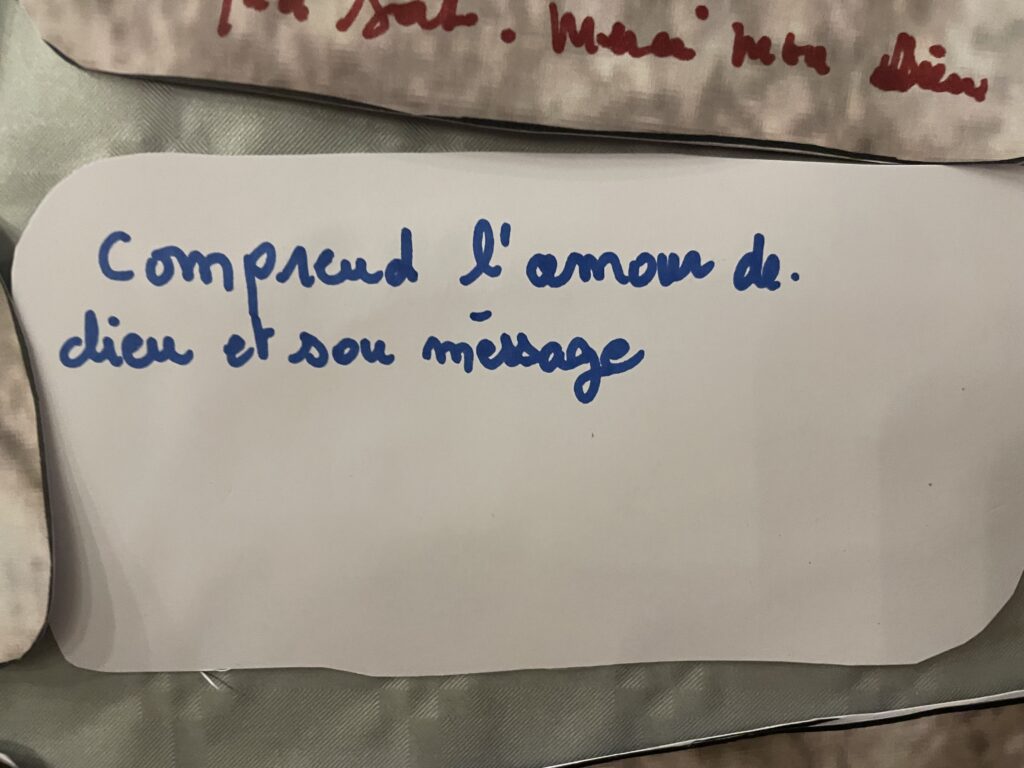 sat. Merci mon Dieu
Comprend l'amour de.
dieu et son méssage